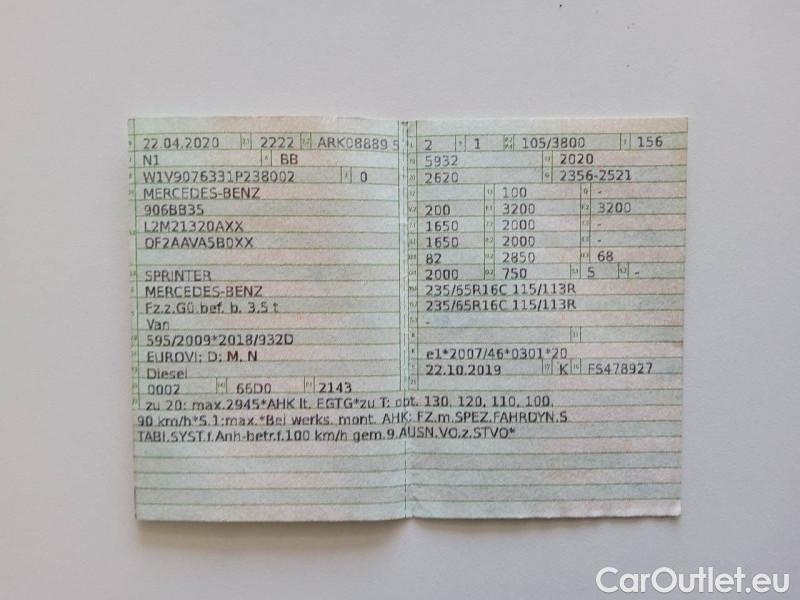 22.04.2020 2222 ARK08889 5
N1 BB
W1V9076331P238002 0
MERCEDES-BENZ
906BB35
L2M21320AXX
OF2AAVA5B0XX
SPRINTER
MERCEDES-BENZ
Fz.z.Gü.bef. b. 3,5 t
Van
595/2009*2018/932D
EUROVI; D; M, N
Diesel
0002 66D0 2143
2 1 105/3800 156
5932 2020
2620 2356-2521
100 -
200 3200 3200
1650 2000 -
1650 2000 -
82 2850 68
2000 750 5 -
235/65R16C 115/113R
235/65R16C 115/113R
-
e1*2007/46*0301*20
22.10.2019 K FS478927
zu 20: max.2945*AHK lt. EGTG*zu T: opt. 130, 120, 110, 100,
90 km/h*S.1:max.*Bei werks. mont. AHK: FZ.m.SPEZ.FAHRDYN.S
TABI.SYST.f.Anh-betr.f.100 km/h gem.9.AUSN.VO.z.STVO*
CarOutlet.eu